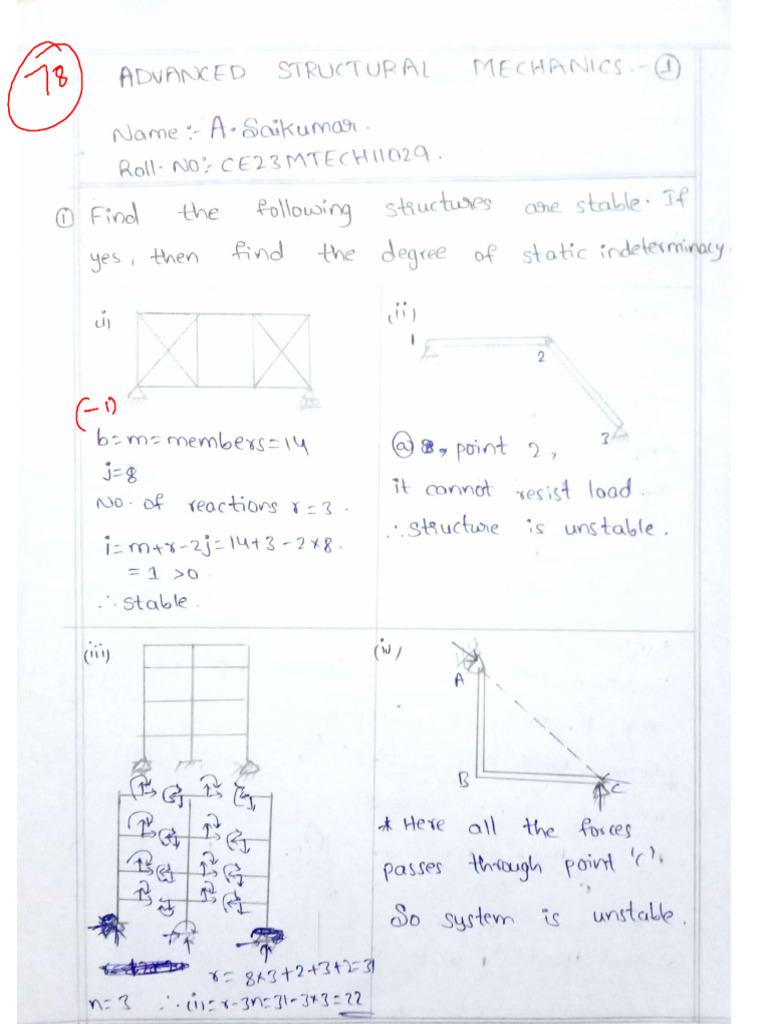 78
ADVANCED STRUCTURAL MECHANICS.-①
Name:- A. Saikumar.
Roll-No:- CE23MTECH11029.
① Find the following structures are stable. If
yes, then find the degree of static indeterminacy.
(i)
(-1)
b=m=members=14
j=8
No. of reactions r=3.
i=m+r-2j=14+3-2×8.
=1 >0
∴ stable.
(ii)
1
2
3
ⓐ point 2,
it cannot resist load.
∴ structure is unstable.
(iii)
r= 8×3+2+3+2=31
n=3 ∴ (i)=r-3n=31-3×3=22
(iv)
A
B
C
* Here all the forces
passes through point 'C'.
So system is unstable.